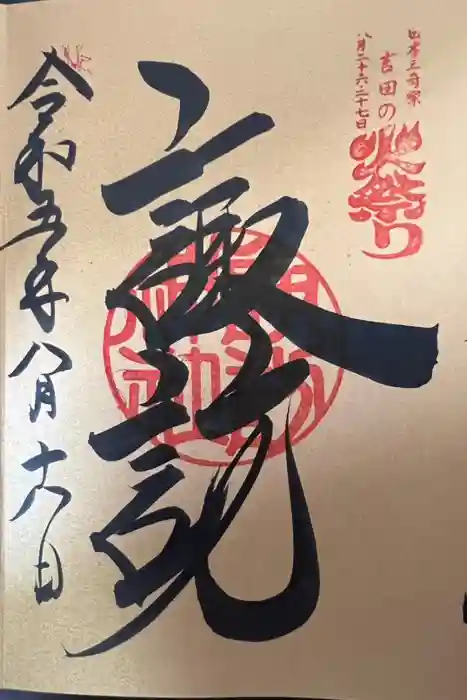 日本三奇祭
吉田の火祭り
八月二十六・二十七日
諏訪
令和五年八月十六日